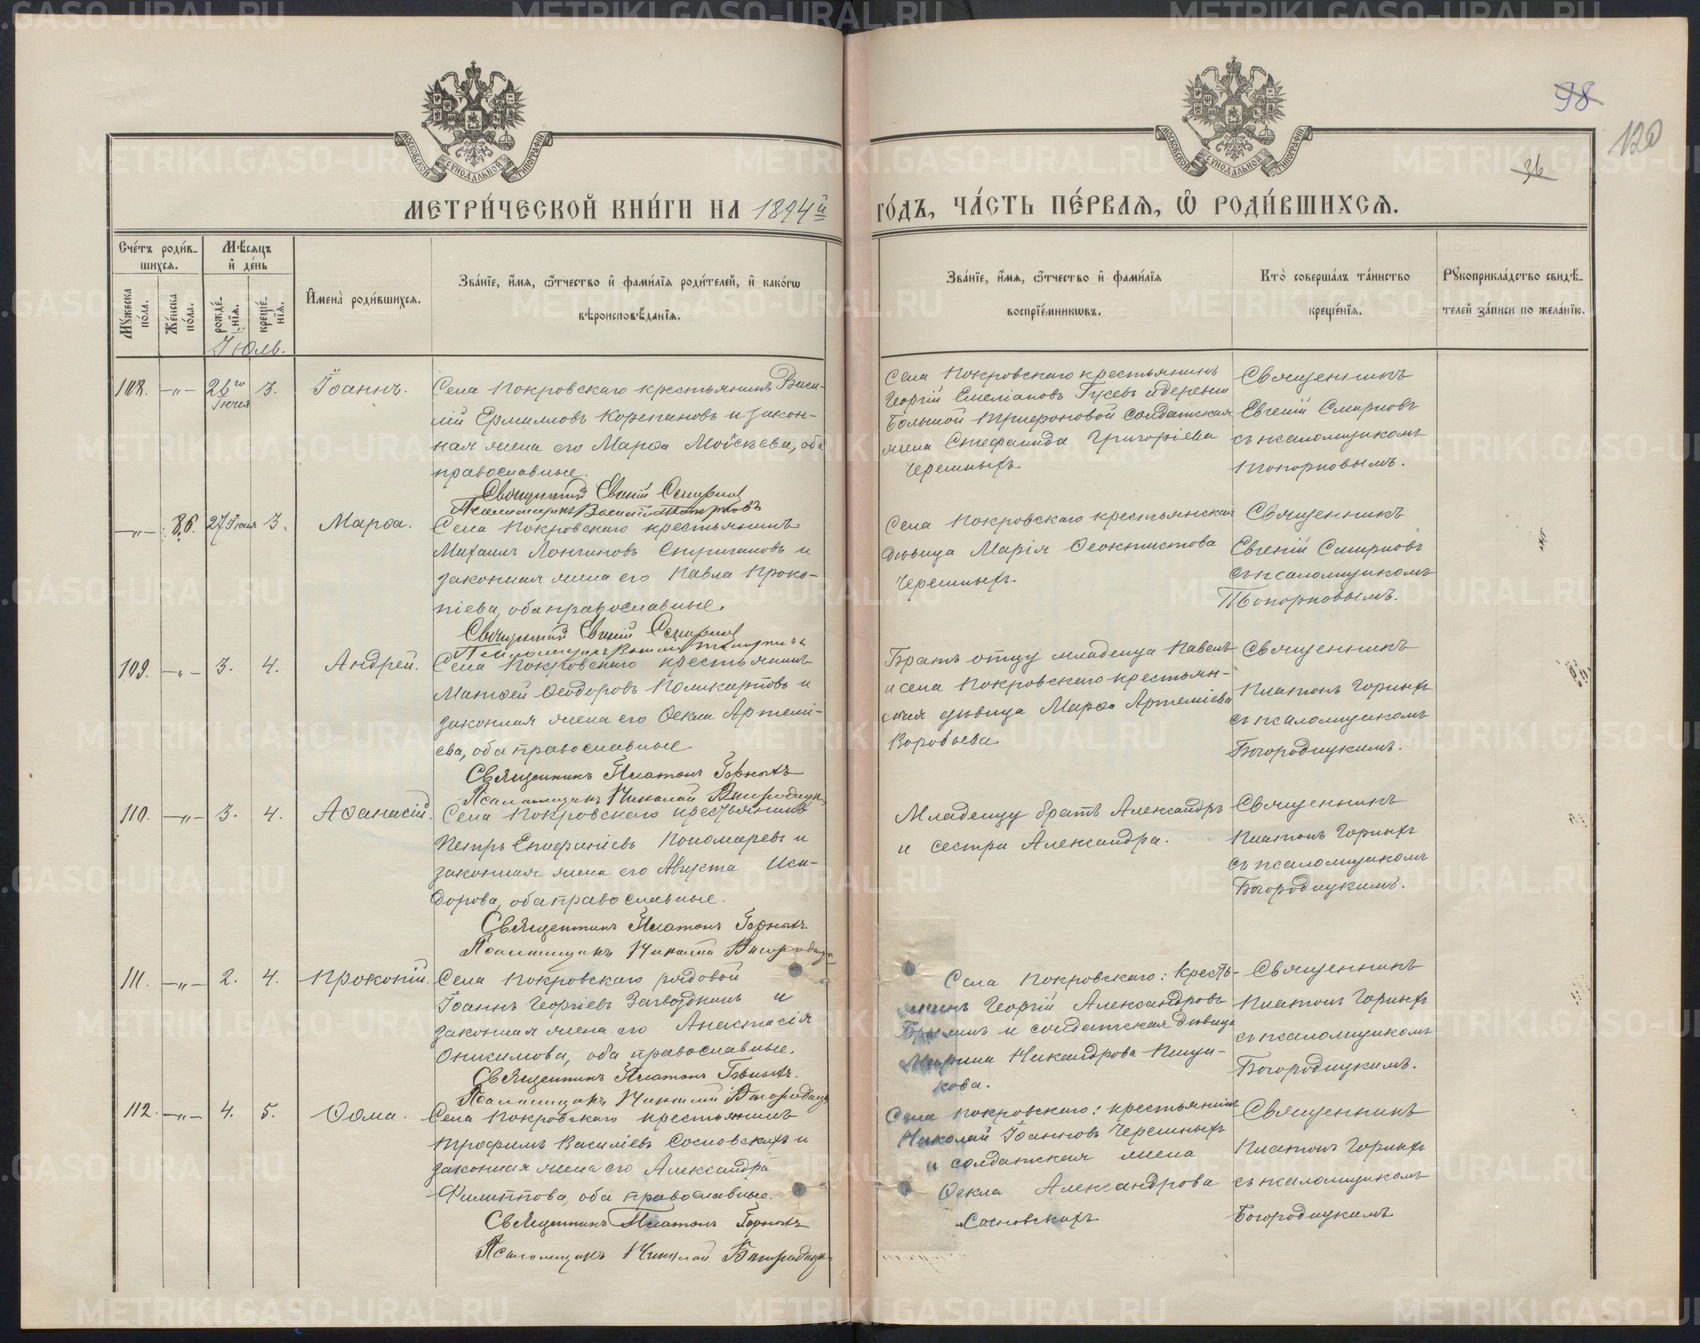 98
120
36
МОСКОВСКОЙ СѴНОДАЛЬНОЙ ТИПОГРАФІИ
МОСКОВСКОЙ СѴНОДАЛЬНОЙ ТИПОГРАФІИ
МЕТРИ́ЧЕСКОЙ КНИ́ГИ НА 1894й
ГО́ДЪ, ЧА́СТЬ ПЕ́РВАѦ, Ѡ҆ РОДИ́ВШИХСѦ.
Сче́тъ роди́в-
шихсѧ.
Мꙋ́жеска по́ла.
Же́нска по́ла.
Мѣ́сѧцъ и҆ де́нь
рожде́-нїѧ.
креще́-нїѧ.
Іюль.
И҆мена̀ роди́вшихсѧ.
Зва́нїе, и҆́мѧ, ѻ҆́тчество и҆ фами́лїѧ роди́телей, и҆ како́гѡ
вѣроисповѣ́данїѧ.
Зва́нїе, и҆́мѧ, ѻ҆́тчество и҆ фами́лїѧ
воспрїе́мникѡвъ.
Кто̀ соверша́лъ та́инство
креще́нїѧ.
Рꙋкоприкла́дство свидѣ́-
телей за́писи по жела́нїю.
108. —"— 26го Іюня 3. Іоаннъ.
Села Покровскаго крестьянинъ Васи-
лій Ермиловъ Корепановъ и закон-
ная жена его Марѳа Моисеева, оба
православные.
Священникъ Евгеній Смирновъ
Псаломщикъ Топорковъ
Села Покровскаго крестьянинъ
Георгій Емеліановъ Гусевъ и деревни
Большой Трифоновой солдатская
жена Стефанида Григоріева
Черемныхъ.
Священникъ
Евгеній Смирновъ
съ псаломщикомъ
Топорковымъ.
—"— 86. 27 Іюня 3. Марѳа.
Села Покровскаго крестьянинъ
Михаилъ Лонгиновъ и
законная жена его Павла Проко-
піева, оба православные.
Священникъ Евгеній Смирновъ
Псаломщикъ
Села Покровскаго крестьянская
дѣвица Марія Ѳеоктистова
Черемныхъ.
Священникъ
Евгеній Смирновъ
съ псаломщикомъ
Топорковымъ.
109. —"— 3. 4. Андрей.
Села Покровскаго крестьянинъ
Матѳей Ѳеодоровъ Поликарповъ и
законная жена его Ѳекла Артемі-
ева, оба православные
Священникъ Платонъ Горныхъ
Псаломщикъ Николай Богородицкій
Братъ отцу младенца Павелъ
и села Покровскаго крестьян-
ская дѣвица Марѳа Артеміева
Воробьева
Священникъ
Платонъ Горныхъ
съ псаломщикомъ
Богородицкимъ.
110. —"— 3. 4. Аѳанасій.
Села Покровскаго крестьянинъ
Петръ Епифаніевъ Пономаревъ и
законная жена его Августа Иси-
дорова, оба православные.
Священникъ Платонъ Горныхъ
Псаломщикъ Николай Богородицкій
Младенцу братъ Александръ
и сестра Александра.
Священникъ
Платонъ Горныхъ
съ псаломщикомъ
Богородицкимъ.
111. —"— 2. 4. Прокопій.
Села Покровскаго рядовой
Іоаннъ Георгіевъ Загвоздкинъ и
законная жена его Анастасія
Онисимова, оба православные.
Священникъ Платонъ Горныхъ.
Псаломщикъ Николай Богородицкій
Села Покровскаго: кресть-
янинъ Георгій Александровъ
Брылинъ и солдатская дѣвица
Марина Никандрова Пиша-
кова.
Священникъ
Платонъ Горныхъ
съ псаломщикомъ
Богородицкимъ.
112. —"— 4. 5. Ѳома.
Села Покровскаго крестьянинъ
Трофимъ Василіевъ Сосновскихъ и
законная жена его Александра
Филиппова, оба православные.
Священникъ Платонъ Горныхъ
Псаломщикъ Николай Богородицкій
Села Покровскаго: крестьянинъ
Николай Іоанновъ Черемныхъ
и солдатская жена
Ѳекла Александрова
Сосновскихъ
Священникъ
Платонъ Горныхъ
съ псаломщикомъ
Богородицкимъ
METRIKI.GASO-URAL.RU